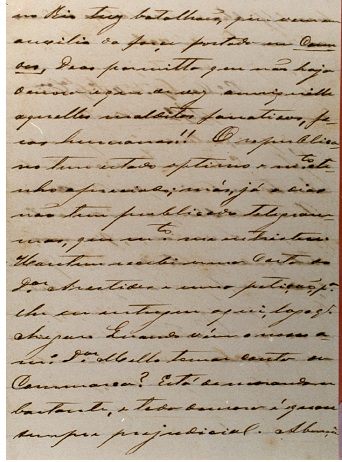 no Rio tres batalhões, que vem em
auxilio da força postada em Canu
dos, Deos permitta que não haja
demora e que de vez anniquille
aquelles malditos fanaticos, fe
ras humanas!! O republica
no tem estado optimo e m.to te
nho apreciado; más, já a dias
não tem publicado telegram
mas, que m.to me entristece.
Hontem recebi uma Carta do
D.or e uma petição p.a
ele eu entregar aqui, logo q.
chegar. Quando vem o nosso a
m.o D.or Mello tomar conta da
Commarca? Está demorando
bastante, e toda demora é quasi
sempre prejudicial.